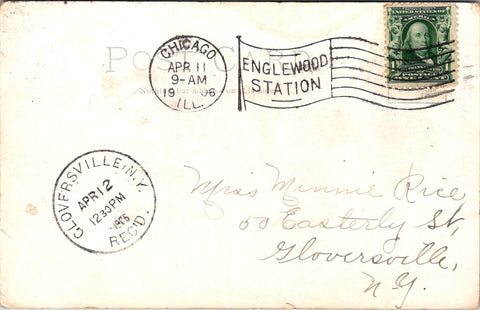 POST CARD
CHICAGO
APR 11
9-AM
1906
ILL.
ENGLEWOOD
STATION
UNITED STATES OF AMERICA
POSTAGE
GLOVERSVILLE, N.Y.
APR 12
1230PM
1906
REC'D.
Miss Minnie Rice
50 Easterly St,
Gloversville,
N.Y.